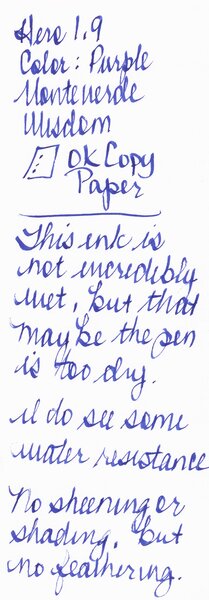 Hero 1.9
Color: Purple
Monteverde
Wisdom
OK Copy
Paper
This ink is
not incredibly
wet, but that
may be the pen
is too dry.
I do see some
water resistance
No sheening or
shading, but
no feathering.